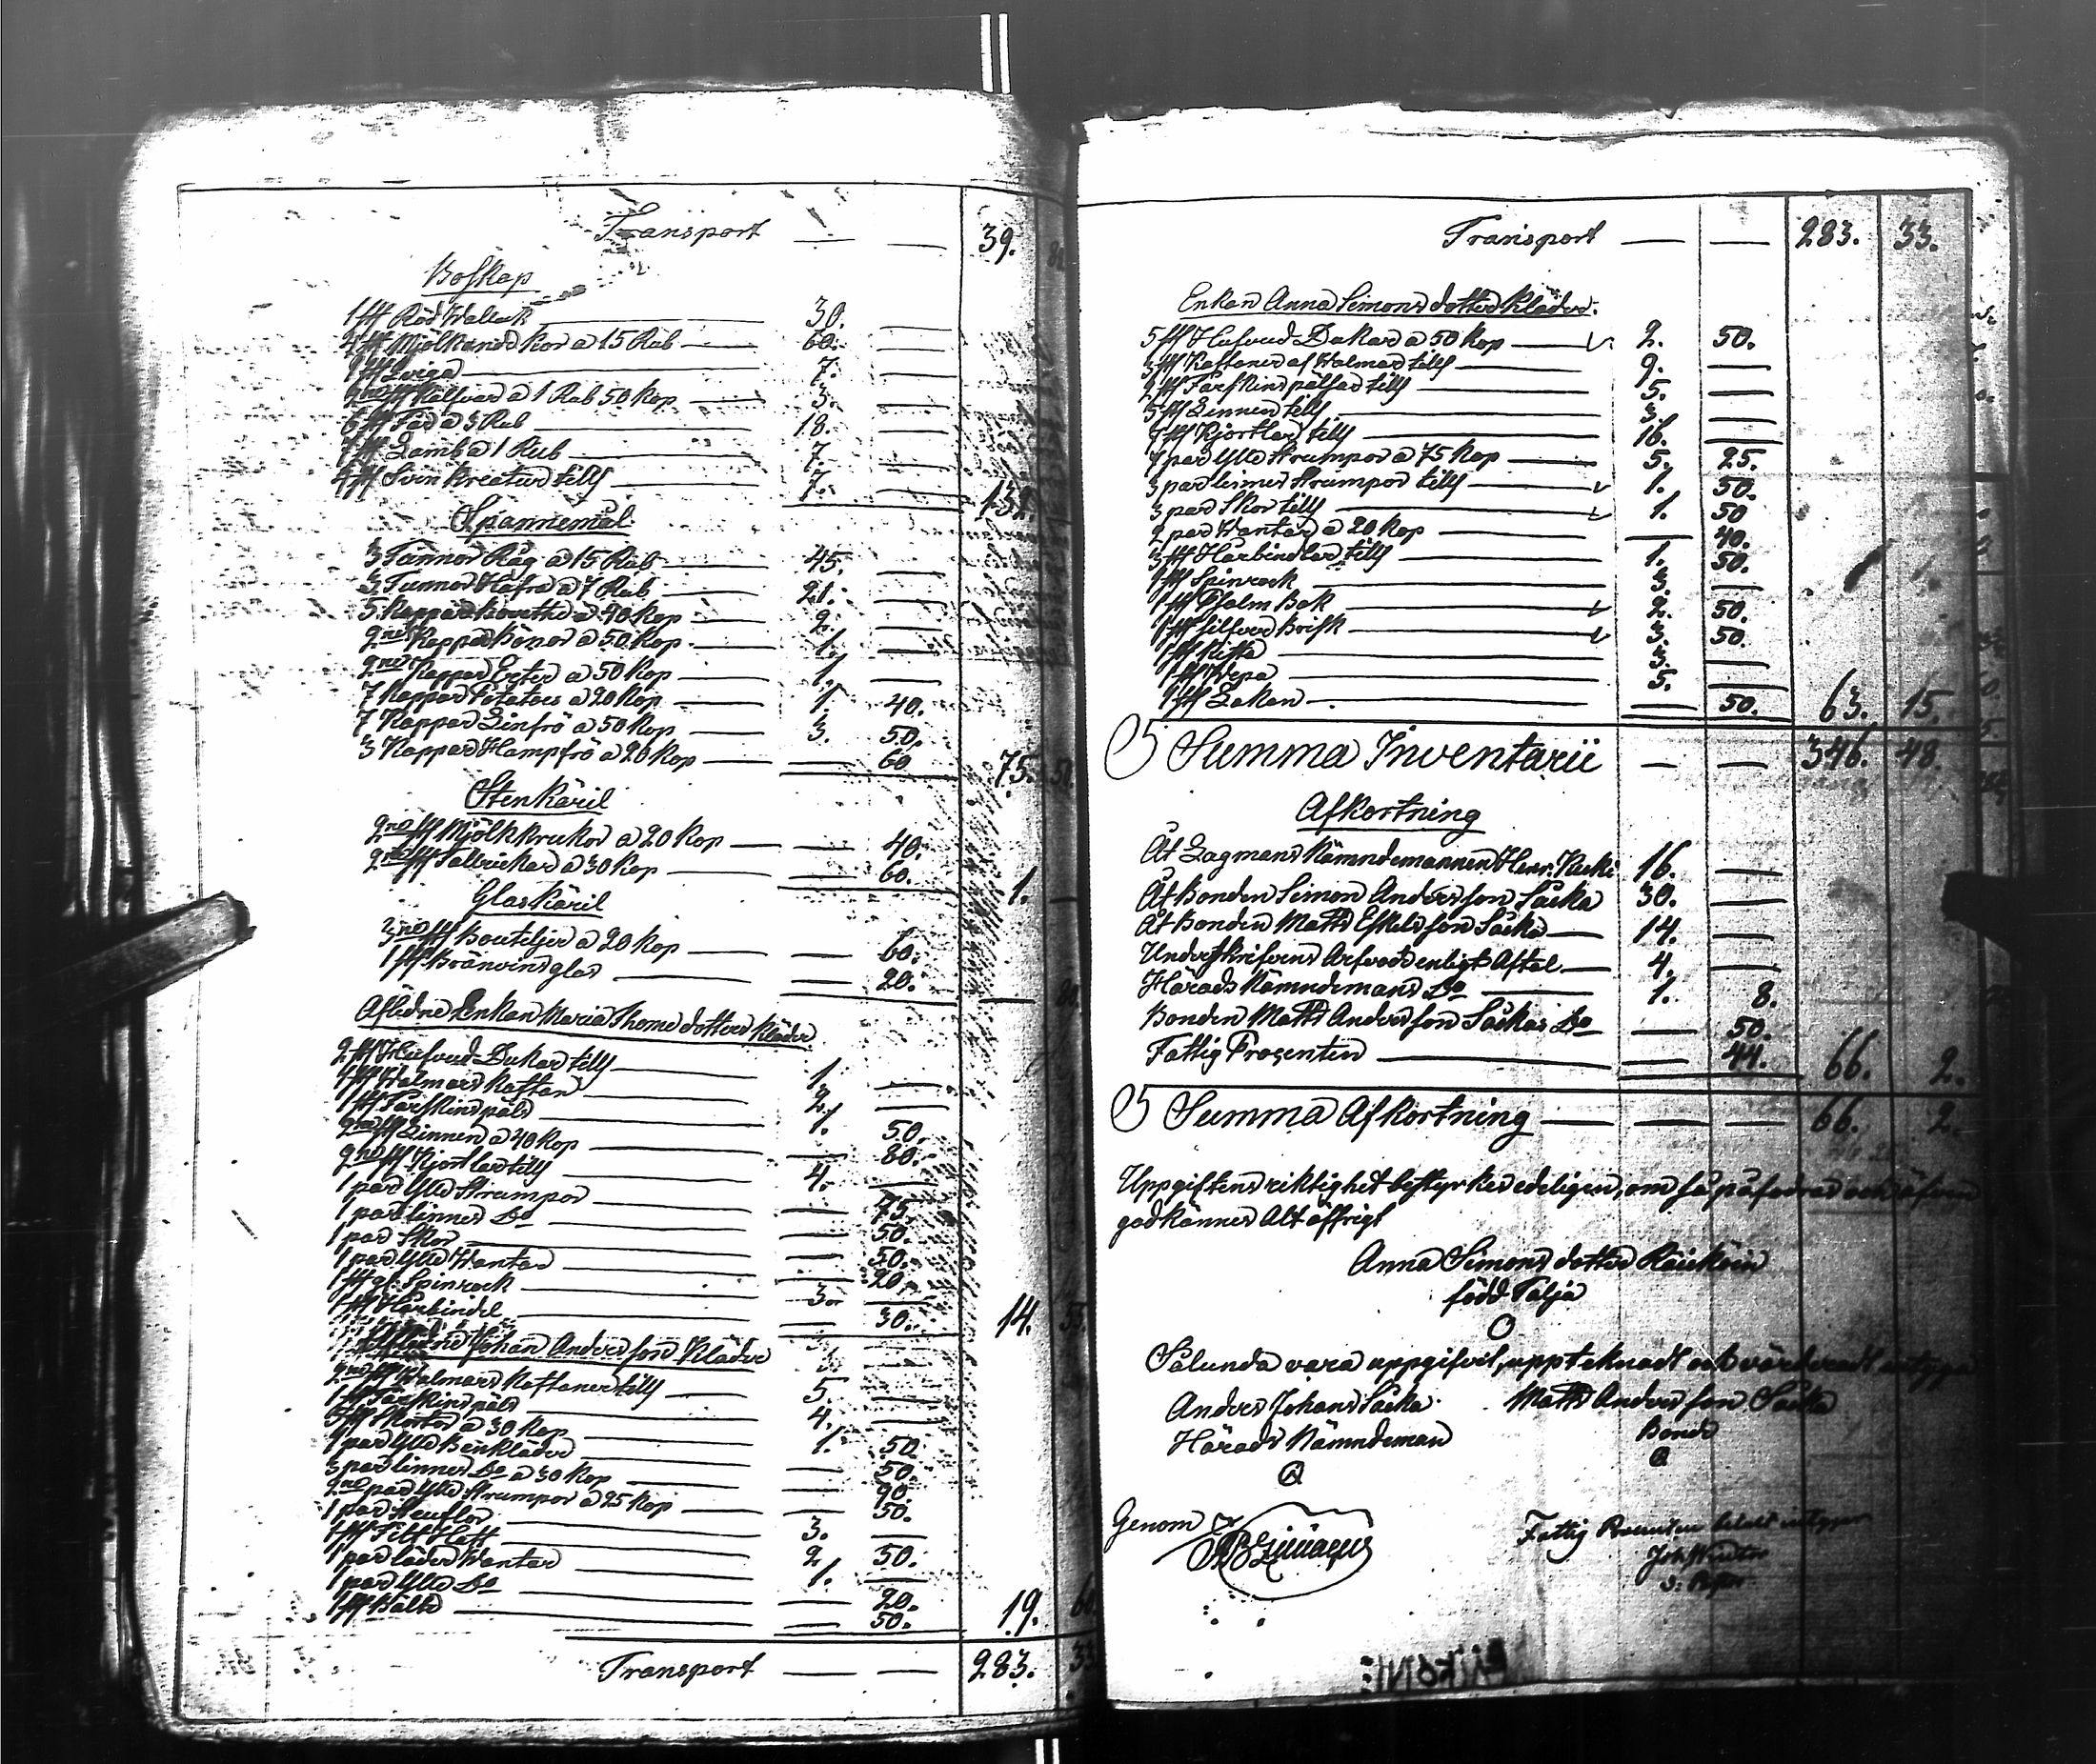 Transport — — 39.
Boskap
1 st Röd Wallak — 30. —
4 st Mjölkande Kor a 15 Rub — 60. —
1 st Qviga — 7. —
2ne st Kalfvar a 1 Rub 50 Kop — 3. —
6 st Får a 3 Rub — 18. —
7 st Lamb a 1 Rub — 7. —
4 st Svin Kreatur till — 7. — 132.
Spannemål
3 Tunnor Råg a 15 Rub — 45. —
3 Tunnor Hafra a 7 Rub — 21. —
5 Kappar a 40 Kop — 2. —
2ne Kappar Bönor a 50 Kop — 1. —
2ne Kappar Erter a 50 Kop — 1. —
7 Kappar Potatoes a 20 Kop — 1. 40.
7 Kappar Linfrö a 50 Kop — 3. 50.
3 Kappar Hampfrö a 20 Kop — 60 75. 50.
Stenkäril
2ne st Mjölkkrukor a 20 Kop — — 40.
2ne st a 30 Kop — — 60. 1. —
Glaskäril
3ne st Bouteljer a 20 Kop — — 60.
1 st Bränvinsglas — — 20. — 80.
Aflidne Enkan Maria Thomædotters Kläder
2 st Hufvud Dukar till — 1. —
1 st Walmars Kaftan — 2. —
1 st Fårskinspäls — 1. 50.
2ne st Linnen a 40 Kop — — 80.
2ne st Kjortlar till — 4. —
1 par Ylle Strumpor — — 75.
1 par linnes Do — — 50.
1 par Skor — — 50.
1 par Ylle Wantar — — 20.
1 st gl. Spinrock — 3. —
1 st Hårbindel — — 30. 14. 55.
Johan Andersson Kläder
2ne st Walmars Kaftaner till — 5. —
1 st Fårskinspäls — 4. —
5 st Skortor a 30 Kop — 1. 50
1 par Ylle Benkläder — — 50.
3 par linnes Do a 30 Kop — — 90.
2ne par Ylle Strumpor a 25 Kop — — 50.
1 par Steuflor — 3. —
1 st Filt Hatt — 2. 50.
1 par läder Wantar — 1. —
1 par Ylle Do — — 20.
1 st Bälte — — 50. 19. 60
Transport — — 283. 33
Transport — — 283. 33.
Enkan Anna Simonsdotters Kläder.
5 st Hufvud Dukar a 50 Kop — 2. 50.
3 st Kaftaner af Walmar till — 9. —
2 st Fårskinspälsar till — 5. —
5 st Linnen till — 3. —
7 st Kjortlar till — 16. —
7 par Ylle Strumpor a 75 Kop — 5. 25.
3 par linnes Strumpor till — 1. 50.
3 par Skor till — 1. 50
2 par Wantar a 20 Kop — — 40.
3 st Hårbindlar till — 1. 50.
1 st Spinrock — 3. —
1 st Psalm Bok — 2. 50.
1 st Silfver Brisk — 3. 50.
1 st Kista — 3. —
1 st Wepa — 5. —
1 st Lakan — — 50. 63. 15.
S Summa Inventarii — — 346. 48.
Afkortning
Åt Lagmans Nämndemannen Henr. — 16. —
Åt Bonden Simon Andersson Säkä 30. —
Åt Bonden Matts Eskelsson Säkä — 14. —
Underskrifvens Arfvode enligt Aftal — 4. —
Härads Nämndemans Do — 1. 8.
Bonden Matts Andersson Säkäs Do — 50.
Fattig Procenten — — 44. 66. 2.
S Summa Afkortning — — — 66. 2.
Uppgiftens riktighet bestyrkes edeligen, om så påfodras och äfven
godkännes Alt öffrigt
Anna Simonsdotter Räikön
född Talja
Sålunda vara uppgifvit, upptecknadt och värderadt
Anders Johans Säkä Matts Andersson Säkä
Härads Nämndeman Bonde
Genom
Fattig Procenten